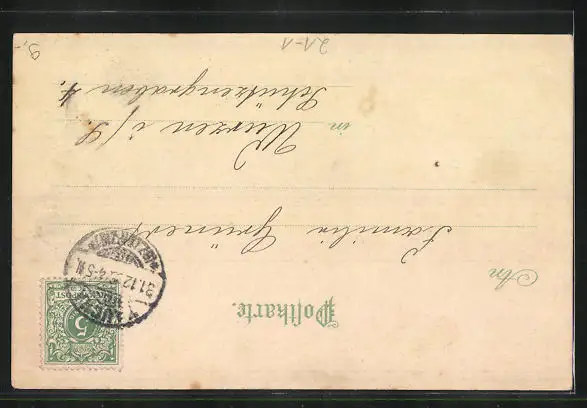 Postkarte.
An
Familie Grünert
in Wurzen i/S.
Schützengraben 4.
5
31.12.
4-5N.
21-1
9,-